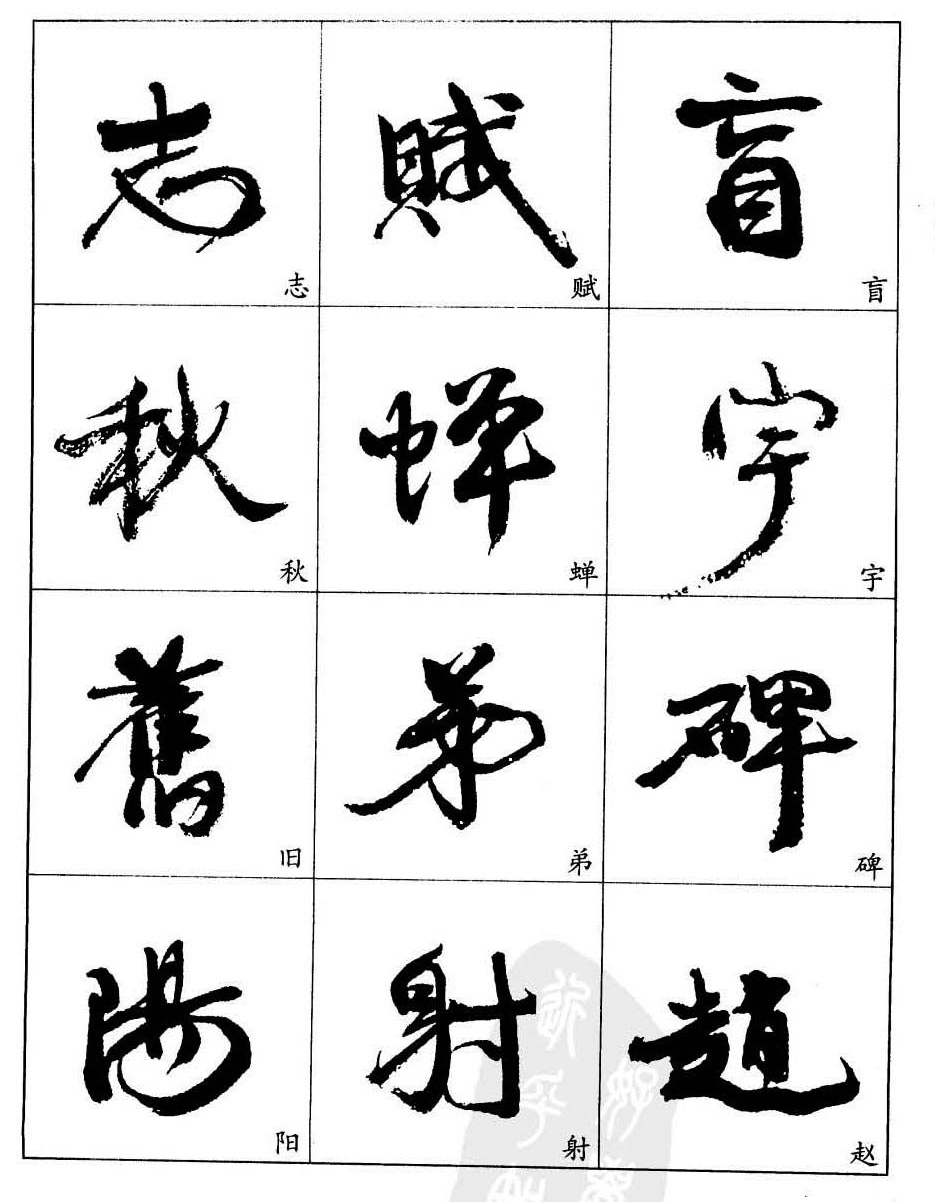 志 赋 盲
志 賦 盲
秋 蝉 宇
秋 蝉 宇
舊 弟 碑
旧 弟 碑
陽 射 趙
阳 射 赵